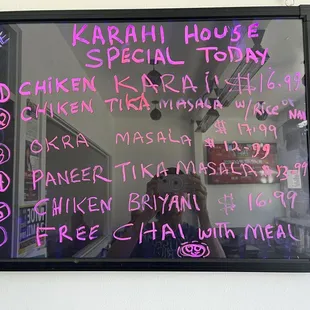 KARAHI HOUSE
SPECIAL TODAY
① CHIKEN KARAii $16.99
② CHIKEN TIKA MASALA W/Rice or NAN
$ 17.99
③ OKRA MASALA $ 12.99
④ PANEER TIKA MASALA $ 13.99
CHIKEN BRIYANI $ 16.99
FREE CHAI with MEAL